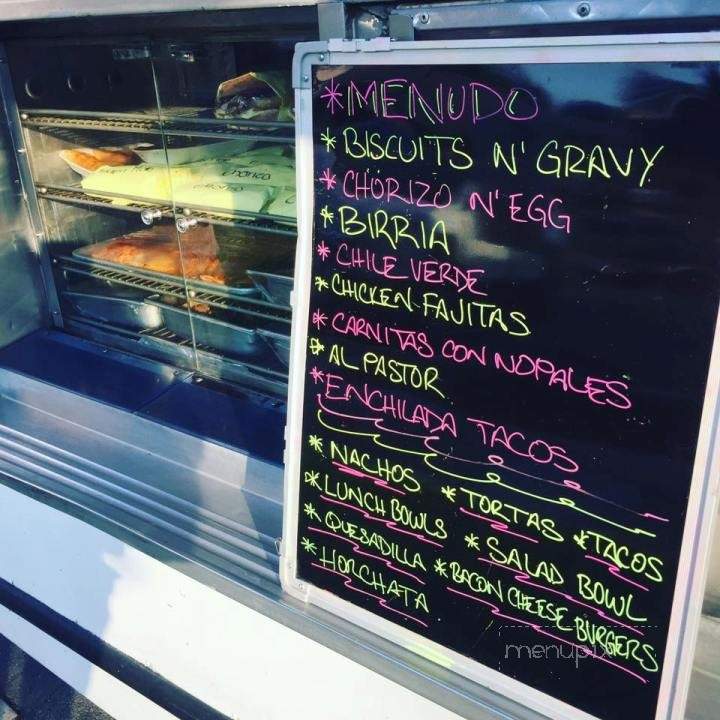 *MENUDO
*BISCUITS N' GRAVY
*CHORIZO N' EGG
*BIRRIA
*CHILE VERDE
*CHICKEN FAJITAS
*CARNITAS CON NOPALES
*AL PASTOR
*ENCHILADA TACOS
*NACHOS *TORTAS *TACOS
*LUNCH BOWLS *SALAD BOWL
*QUESADILLA *BACON CHEESE BURGERS
*HORCHATA
menupix